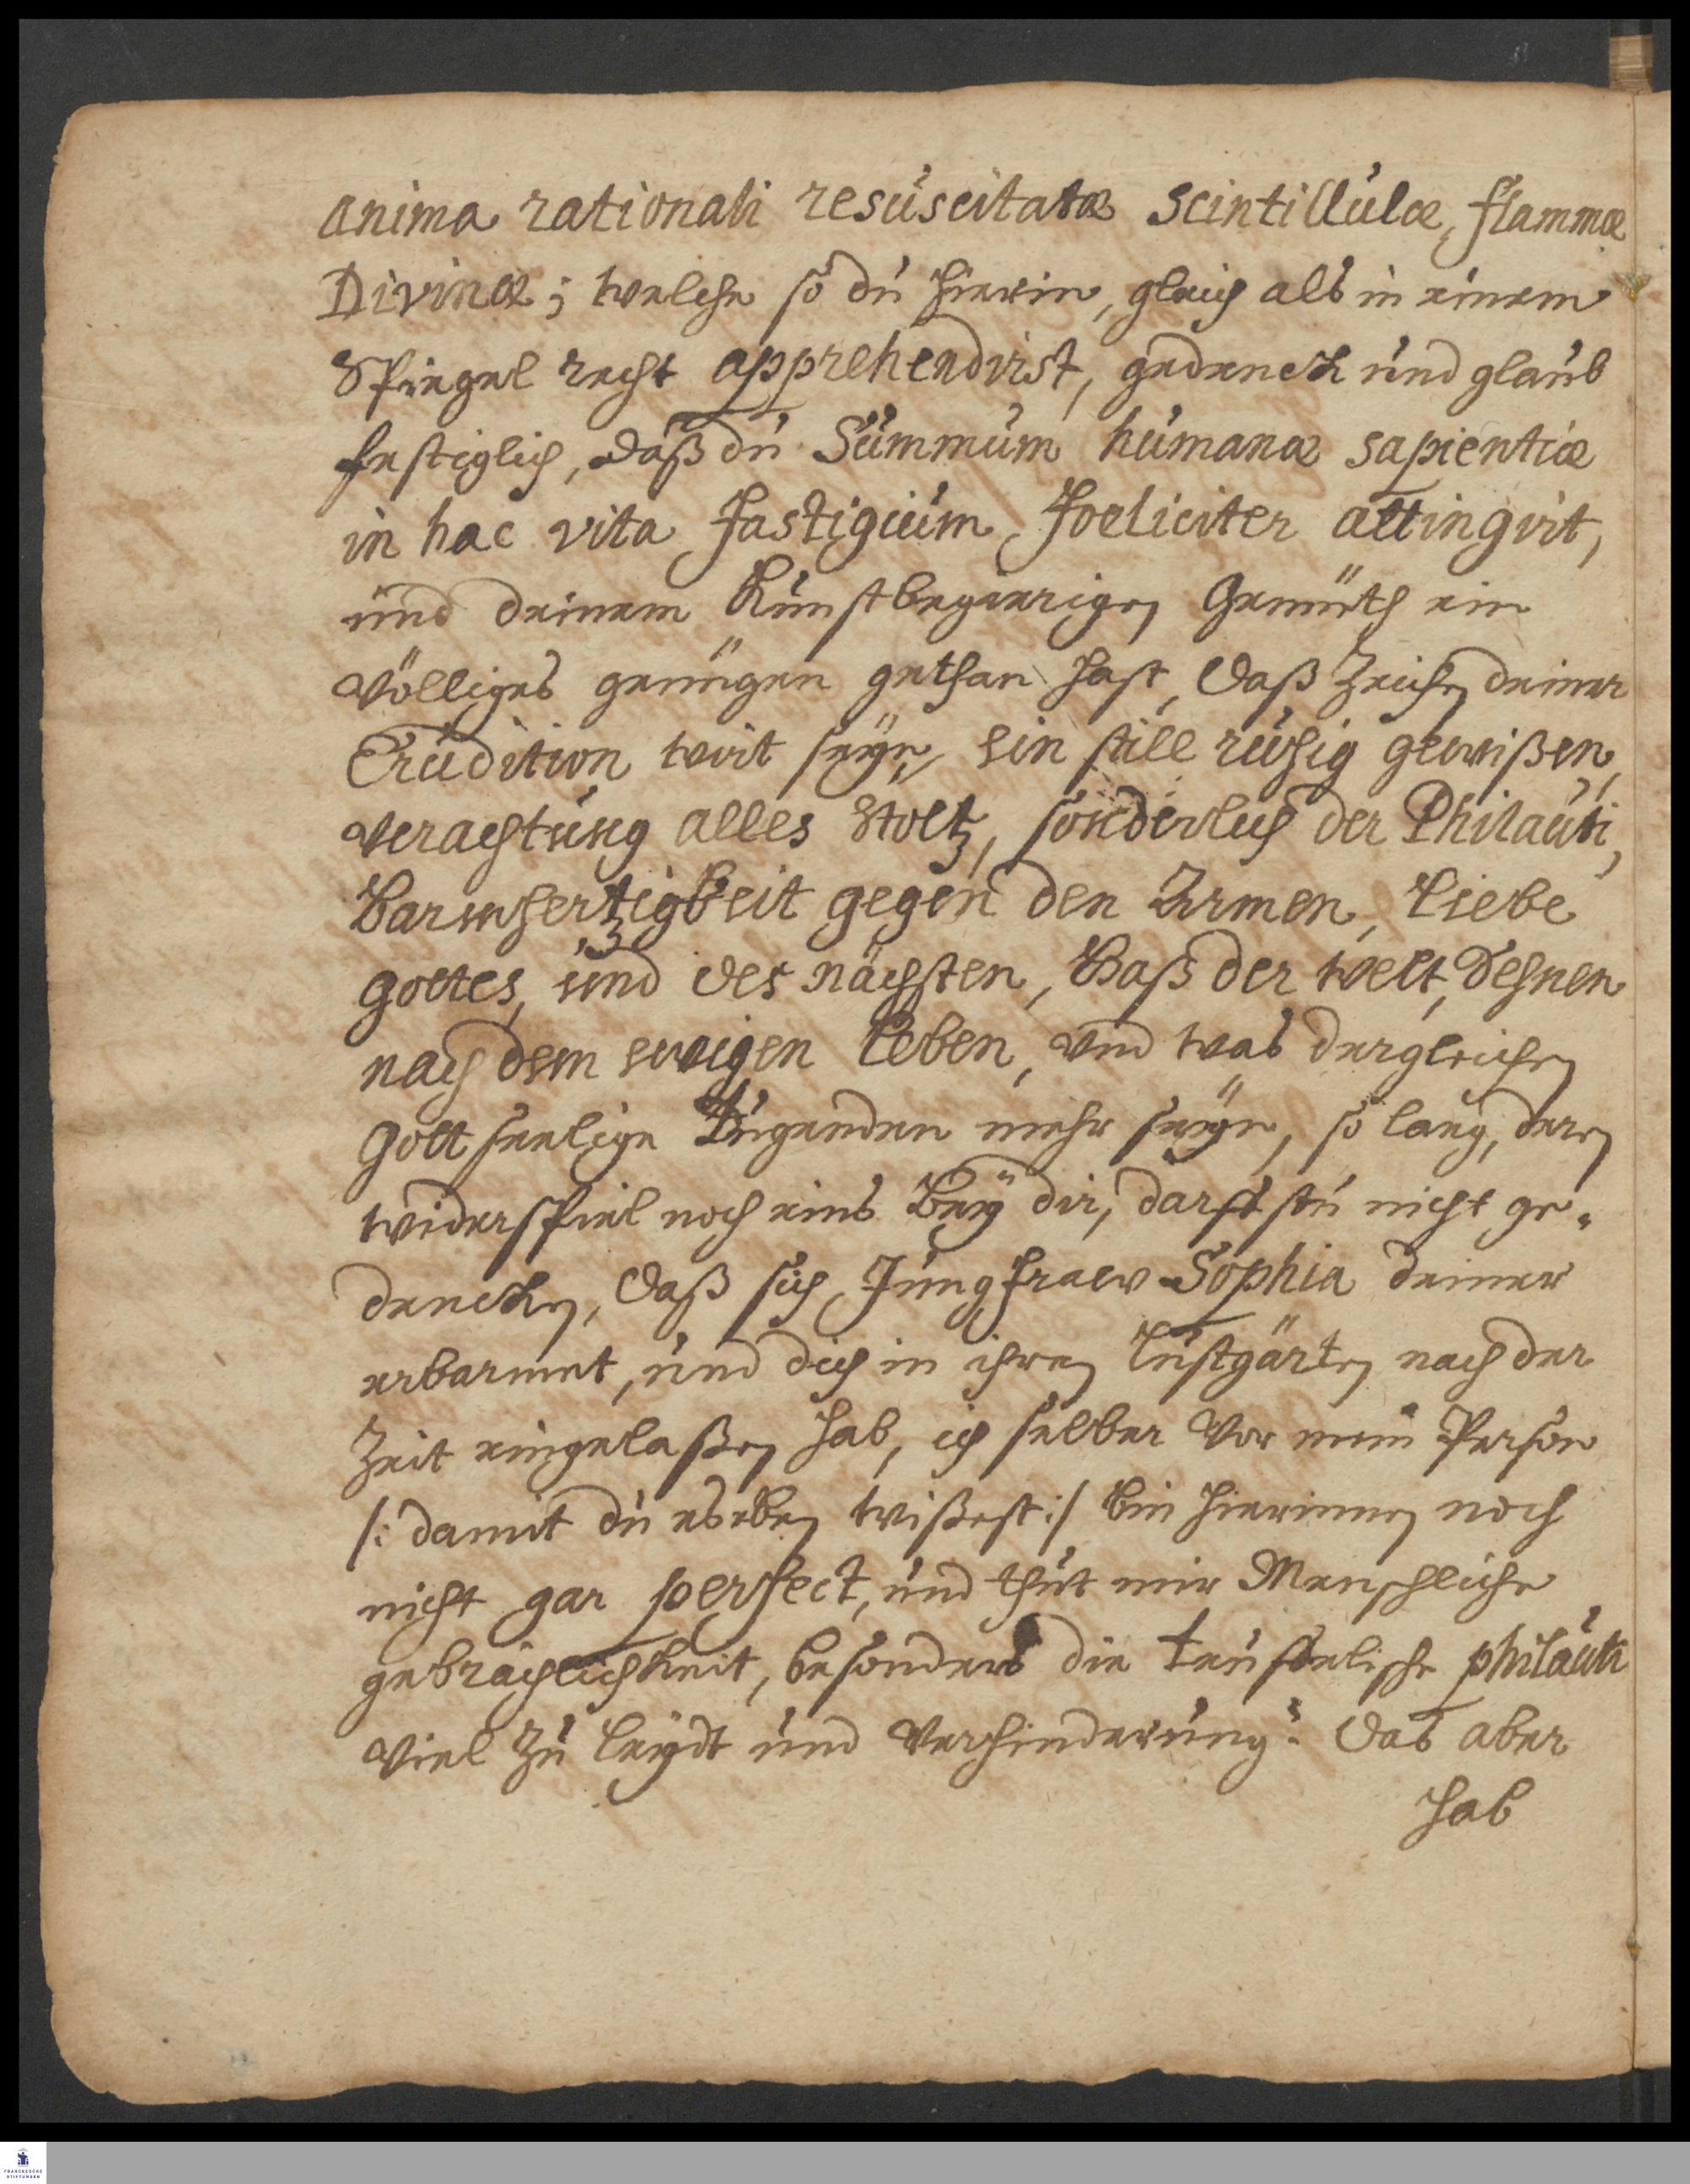 anima rationali resuscitatæ scintillulæ, flammæ
Divinæ; welche so du hierin, gleich als in einem
Spiegel recht apprehendirst, gedenck und glaub
festiglich, daß du Summum humanæ sapientiæ
in hac vita fastigium foeliciter attingirt,
und deinem Kunstbegierigen Gemüth ein
völliges genügen gethan hast, daß Zeichen deiner
Erudition wirt seyn, ein still ruhig gewißen,
verachtung alles Stoltz, sonderlich der Philauti,
Barmhertzigkeit gegen den Armen, Liebe
Gottes, und des nächsten, Haß der welt, Sehnen
nach dem ewigen Leben, und was dergleichen
Gottseelige Tugenden mehr seyn, so lang, deren
widerspiel noch eins bey dir, darfstu nicht ge=
dencken, daß sich Jungfraw Sophia deiner
erbarmet, und dich in ihren Lustgärten nach der
Zeit eingelaßen hab, ich selber vor mein Person
/: damit du es eben wißest :/ bin hierinnen noch
nicht gar perfect, und thut mir Menschliche
gebrächlichkeit, besonders die teuffelische philauti
viel zu leydt und verhinderung: das aber
hab
FRANCKESCHE
STIFTUNGEN